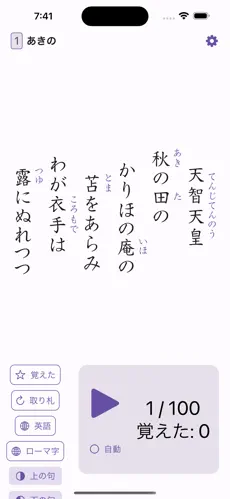 7:41
1 あきの
天智天皇
てんじてんのう
秋の田の
あき た
かりほの庵の
いほ
苫をあらみ
とま
わが衣手は
ころもで
露にぬれつつ
つゆ
覚えた
取り札
英語
ローマ字
上の句
下の句
1 / 100
覚えた: 0
自動